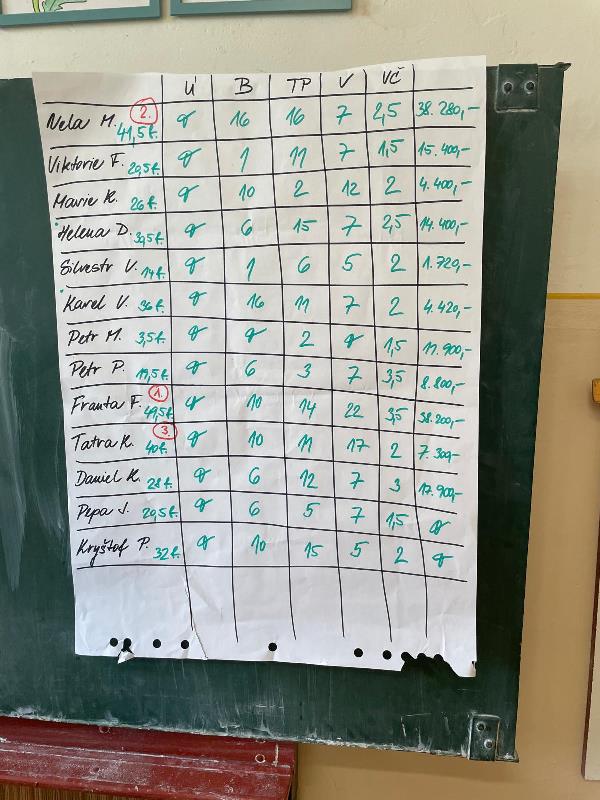 U B TP V VČ
Nela M. 2. 41,5 b. 0 16 16 7 2,5 38.280,-
Viktorie F. 20,5 b. 0 1 11 7 1,5 15.400,-
Marie K. 26 b. 0 10 2 12 2 4.400,-
Helena D. 30,5 b. 0 6 15 7 2,5 14.400,-
Silvestr V. 14 b. 0 1 6 5 2 1.720,-
Karel V. 36 b. 0 16 11 7 2 4.420,-
Petr M. 3,5 b. 0 0 2 0 1,5 11.900,-
Petr P. 19,5 b. 0 6 3 7 3,5 8.800,-
Franta F. 1. 49,5 b. 0 10 14 22 3,5 38.200,-
Tatra K. 3. 40 b. 0 10 11 17 2 7.300,-
Daniel K. 28 b. 0 6 12 7 3 17.900,-
Pepa J. 20,5 b. 0 6 5 7 1,5 0
Kryštof P. 32 b. 0 10 15 5 2 0